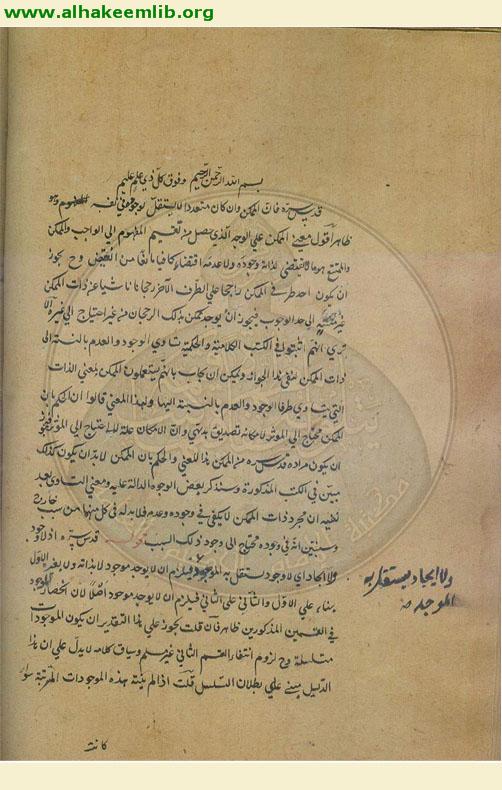 www.alhakeemlib.org
بسم الله الرحمن الرحيم وفوق كل ذي علم عليم
قدس سره فان الممكن وان كان متعددا لا يستقل بوجوده في نفسه
ظاهر اقول معنى الممكن على الوجه الذي حصل من تقسيم المفهوم الى الواجب والممكن
والممتنع هو ما لا يقتضي لذاته وجوده ولا عدمه اقتضاء كافيا مانعا من النقيض وح يجوز
ان يكون احد طرفي الممكن راجحا على الطرف الآخر رجحانا ناشيا عن ذات الممكن
غير الى حد الوجوب فيجوز ان يوجد ممكن بذلك الرجحان من غير احتياج الى غيره الا
ترى انهم اثبتوا في الكتب الكلامية والحكمية تساوي الوجود والعدم بالنسبة الى
ذات الممكن بنفي هذا الجواز ويمكن ان يجاب بانهم يستعملون الممكن بمعنى الذات
التي يتساوى طرفا الوجود والعدم بالنسبة اليها وبهذا المعنى قالوا ان الحكم بان
الممكن محتاج الى المؤثر لامكانه تصديق بديهي وان الامكان علة للاحتياج الى المؤثر فيجوز
ان يكون مراده قدس سره من الممكن هذا المعنى والحكم بان الممكن لا بد ان يكون كذلك
مبين في الكتب المذكورة وسنذكر بعض الوجوه الدالة عليه ومعنى التساوي بعد
ان مجرد ذات الممكن لا يكفي في وجوده وعدمه فلا بد له في كل منهما من سبب خارج
وسنبين انه في وجوده محتاج الى وجود ذلك السبب قدس سره اذ لا وجود
ولا ايجاد اي لا وجود يستقل به الموجود فيلزم ان لا يوجد موجود لا بذاته ولا بغيره الاول
بناء على الاول والثاني على الثاني فيلزم ان لا يوجد موجود اصلا لان انحصار الموجود
في القسمين المذكورين ظاهر فان قلت يجوز على هذا التقدير ان يكون الموجودات
متسلسلة وح لزوم انتفاء القسم الثاني غير مسلم وسياق كلامه لا يدل على ان هذا
الدليل مبني على بطلان التسلسل قلت اذا لم ينته هذه الموجودات المترتبة سواء
ولا ايجاد يستقل به
الموجد منه
كانت